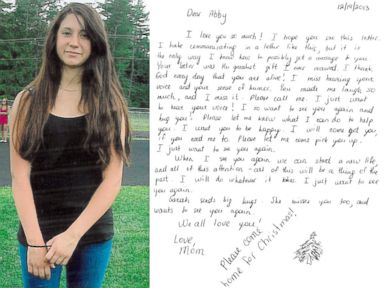 12/12/2013
Dear Abby
I love you so much! I hope you see this letter.
I hate communicating in a letter like this, but it is
the only way I know how to possibly get a message to you.
Your letter was the greatest gift I ever received. I thank
God every day that you are alive! I miss hearing your
voice and your sense of humor. You made me laugh so
much, and I miss it. Please call me. I just want
to hear your voice! I so want to see you again and
hug you! Please let me know what I can do to help
you. I want you to be happy. I will come get you,
if you need me to. Please let me come pick you up.
I just want to see you again.
When I see you again we can start a new life,
and all of this attention - all of this will be a thing of the
past. I will do whatever it takes. I just want to see
you again.
Sarah sends big hugs. She misses you too, and
wants to see you again.
We all love you!
Love,
Mom
Please come
home for Christmas!